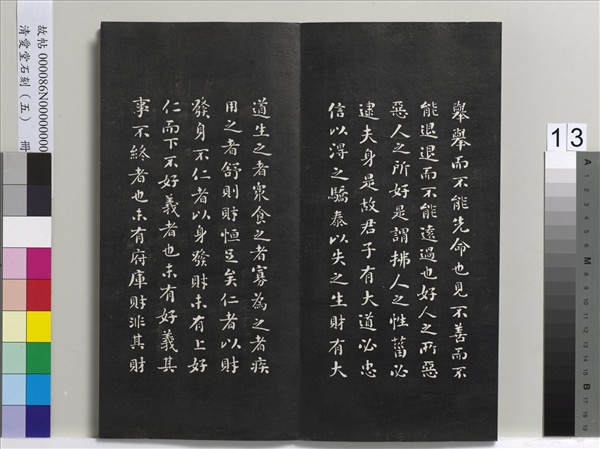 舉舉而不能先命也見不善而不
能退退而不能遠過也好人之所惡
惡人之所好是謂拂人之性菑必
逮夫身是故君子有大道必忠
信以得之驕泰以失之生財有大
道生之者衆食之者寡為之者疾
用之者舒則財恒足矣仁者以財
發身不仁者以身發財未有上好
仁而下不好義者也未有好義其
事不終者也未有府庫財非其財
故帖000086N000000000
清愛堂石刻（五） 冊
13
A
1
2
3
4
5
6
M
8
9
10
11
12
13
14
15
B
17
18
19